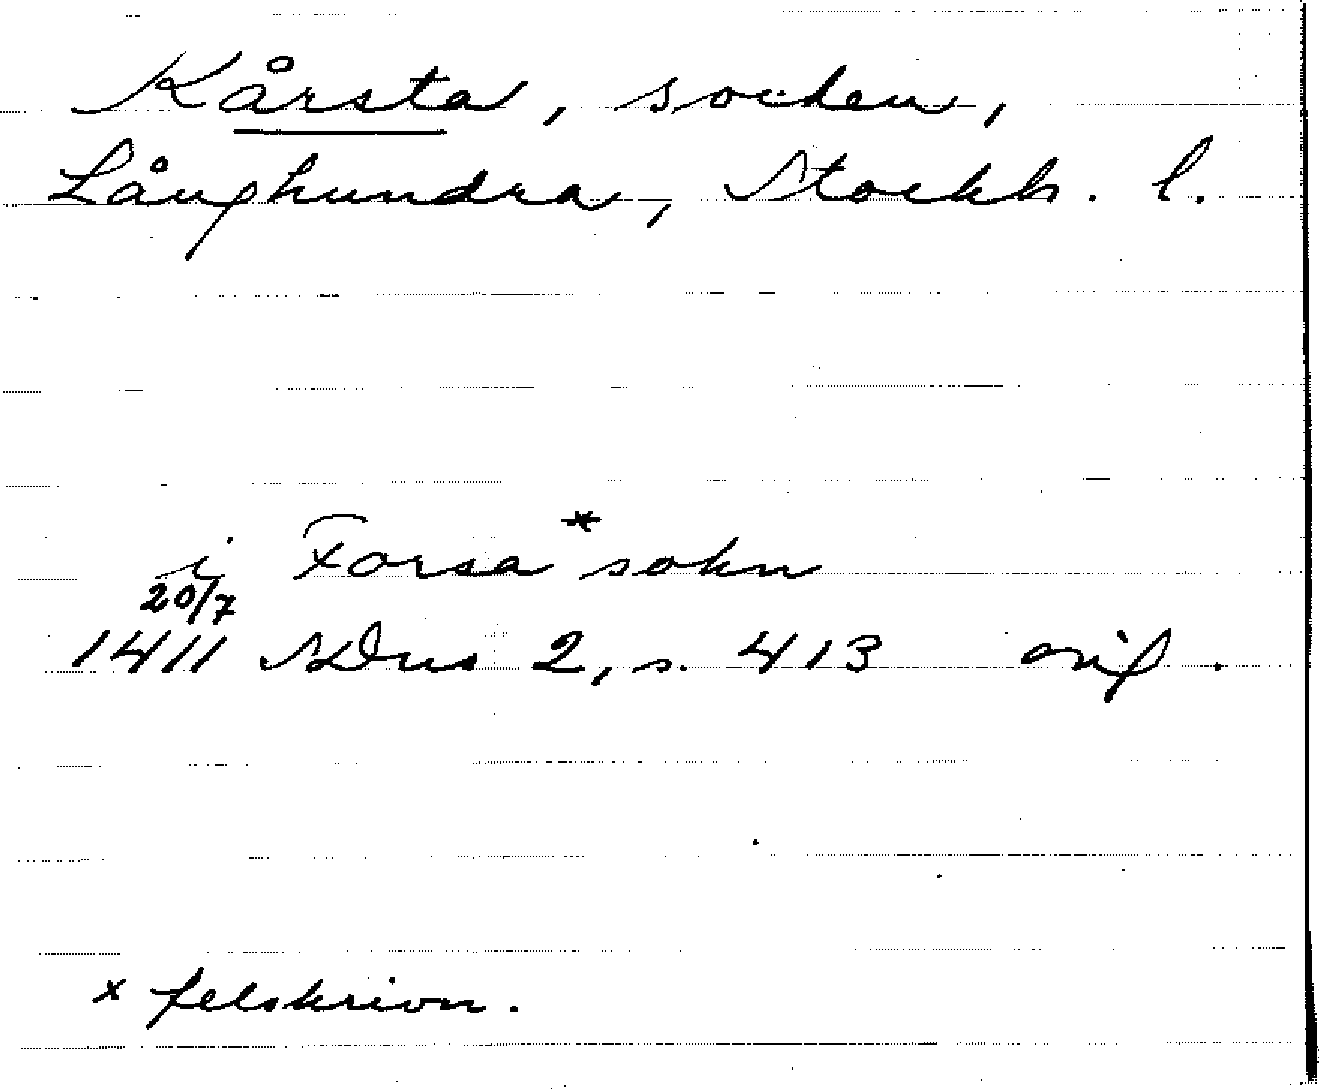 Kårsta, socken,
Långhundra, Stockh. l.
i Forsa* sokn
20/7
1411 SDns 2, s. 413 orig.
x felskrivn.